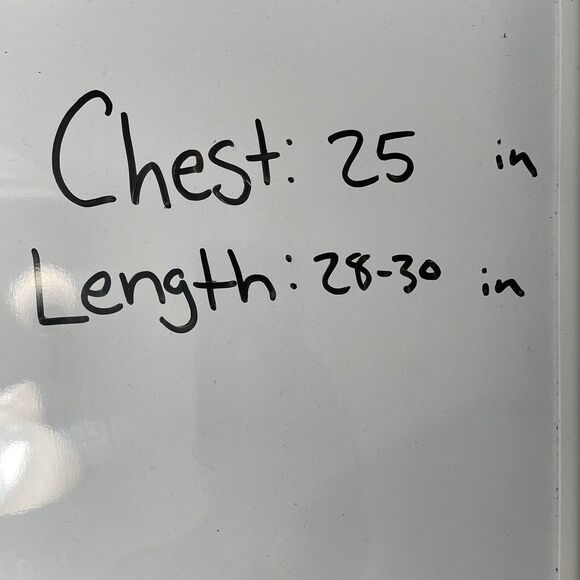 Chest: 25 in
Length: 28-30 in